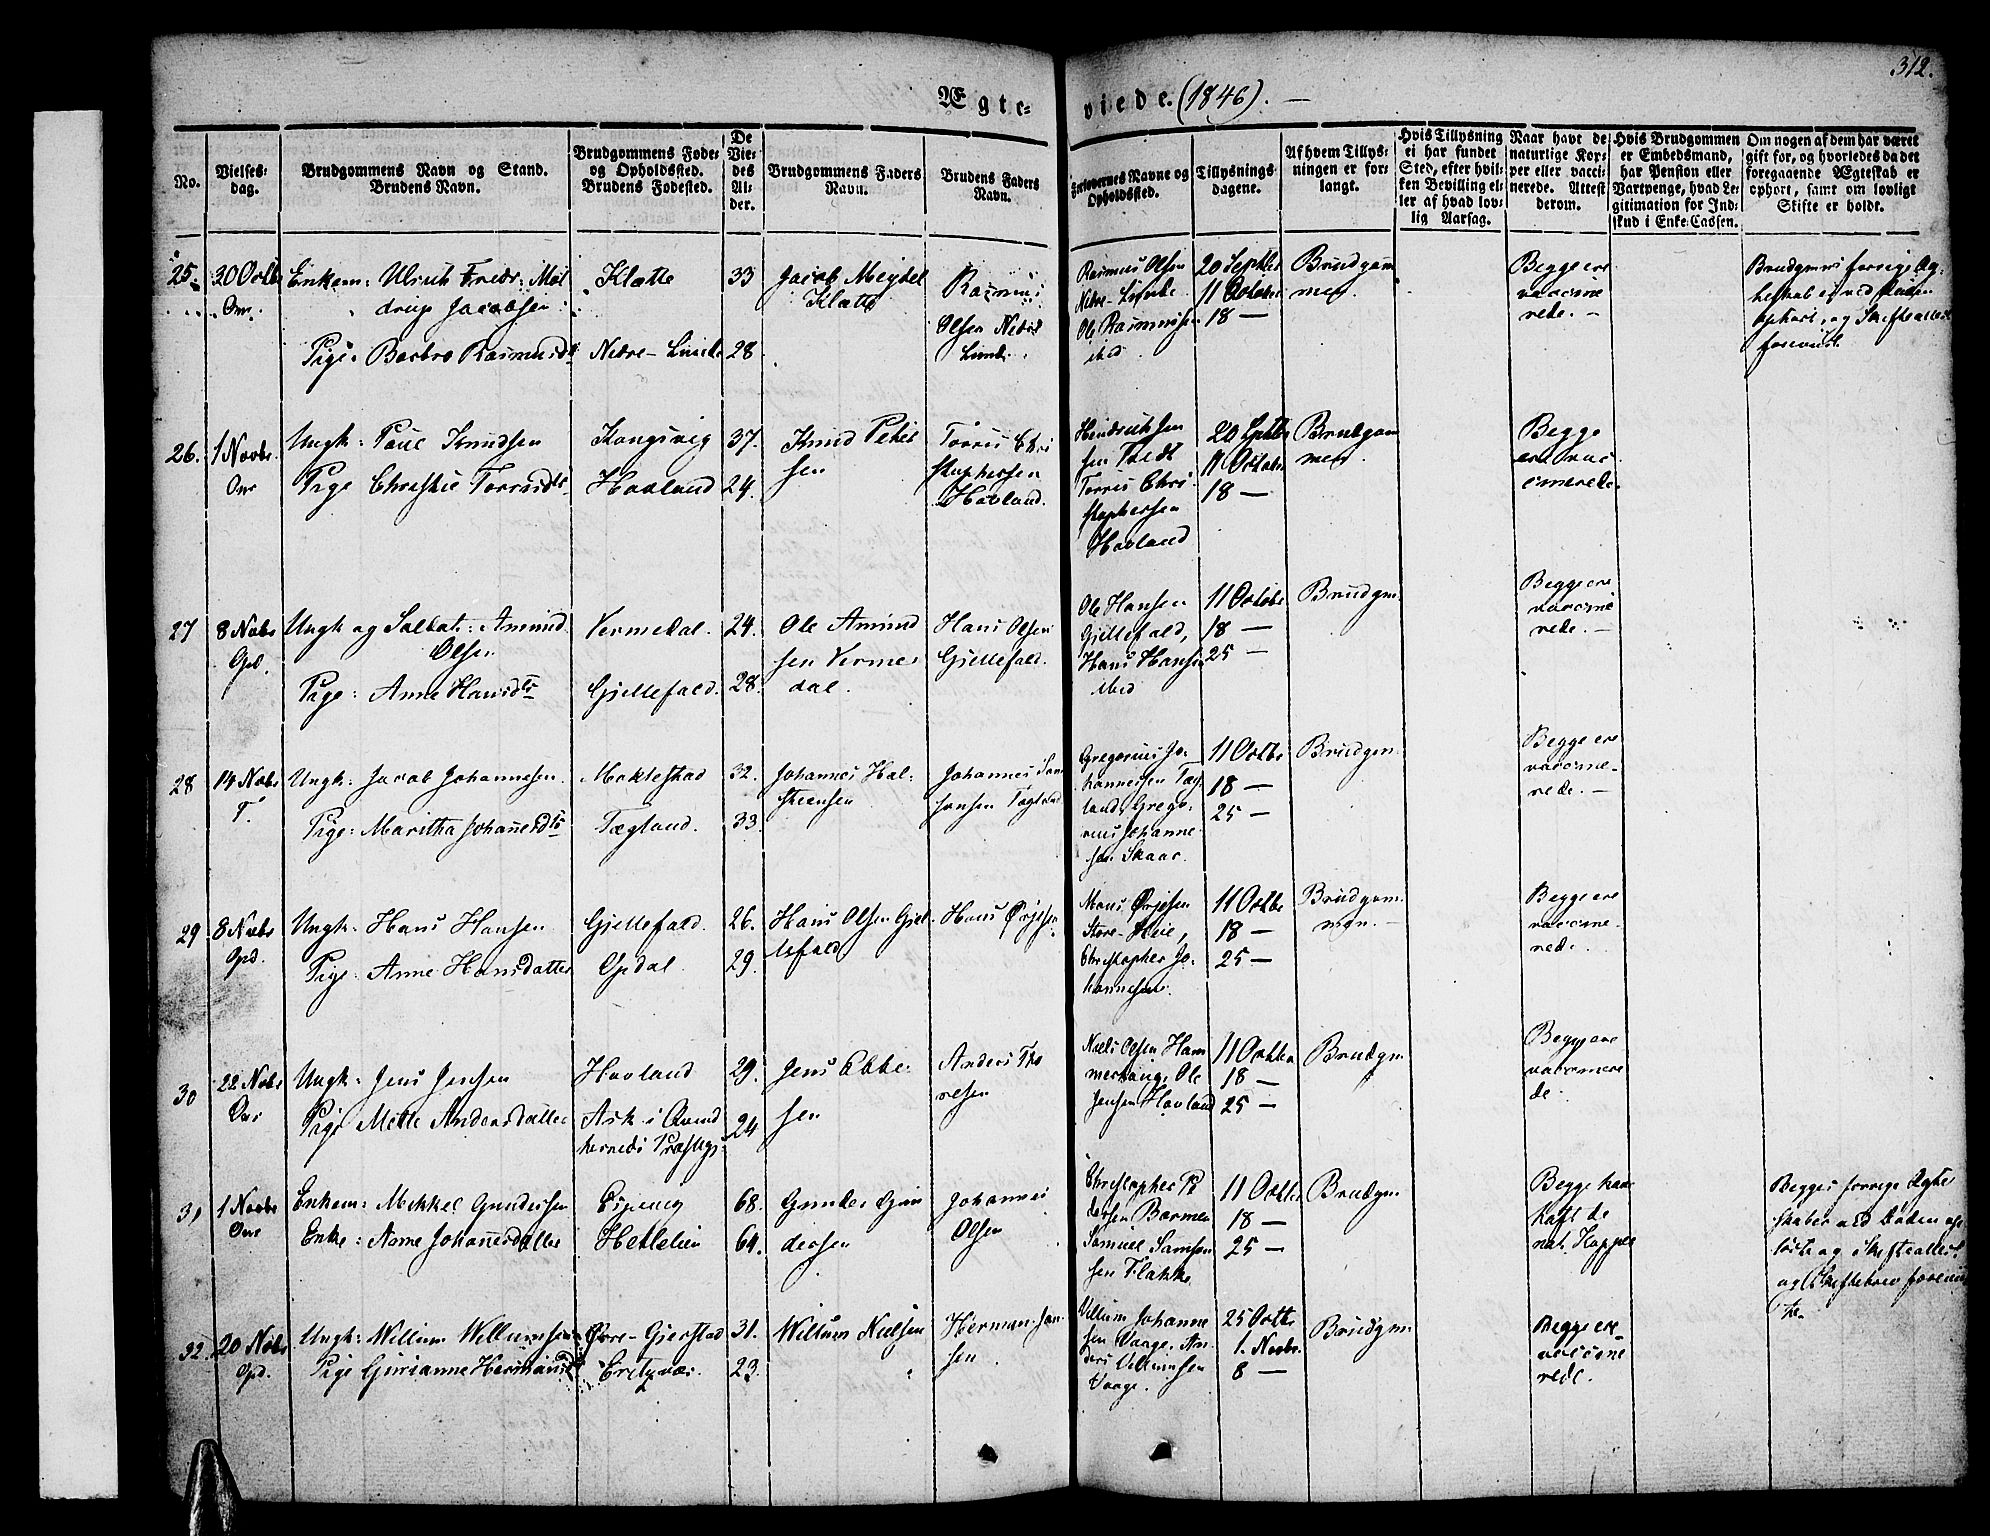 312.
Ægte= viede. (1846). —
No.
Vielses=
dag.
Brudgommens Navn og Stand.
Brudens Navn.
Brudgommens Føde=
og Opholdssted.
Brudens Fødested.
De
Vie=
des
Al=
der.
Brudgommens Faders
Navn.
Brudens Faders
Navn.
Forlovernes Navne og
Opholdssted.
Tillysnings=
dagene.
Af hvem Tillys=
ningen er for=
langt.
Hvis Tillysning
ei har fundet
Sted, efter hvil=
ken Bevilling el=
ler af hvad lov=
lig Aarsag.
Naar havt de
naturlige Kop=
per eller vacci=
nerede. Attest
derom.
Hvis Brudgommen
er Embedsmand,
har Pension eller
Vartpenge, hvad Le=
gitimation for Ind=
skud i Enke=Cassen.
Om nogen af dem har været
gift før, og hvorledes da det
foregaaende Ægteskab er
ophørt, samt om lovligt
Skifte er holdt.
25.
30 Octb
Enkem: Ulrich Fredr: Mel
drup Jacobsen
Pige: Barbro Rasmusd
Klætte
Nedre-Linde
33
28
Jacob Meydel
Klætte
Rasmus
Olsen Nedre
Linde
Rasmus Olsen
Nedre-Linde
Ole Rasmussen
ibid
20 Septbr
11 October
18 —
Brudgom
men.
Begge ere
vaccine
rede. —
Brudgoms forrige Æg
teskab er ved Døden
ophørt, og Skifteattest
foreviist.
26.
1 Novbr.
Ungk: Poul Knudsen
Pige Christie Torrisd
Kongsvig
Hovland
37.
24.
Knud Peter
sen
Torris Chri
stophersen
Hovland.
Hendrich
sen Tvedt
Torris Chri
stophersen
Hovland
20 Septbr
11 October
18 —
Brudgom
men
Begge
ere vac
cinerede.
27
8 Novbr
Opd.
Ungk og Soldat: Amund
Olsen
Pige: Anne Hansd
Vermedal.
Gjellefald.
24.
28.
Ole Amund
sen Verme
dal.
Hans Olsen
Gjellefald.
Ole Hansen
Gjellefald,
Hans Hansen
ibid
11 Octobr
18 —
25 —
Brudgm.
Begge ere
vaccine
rede. —
28
14 Novbr
T.
Ungk: Jacob Johannesen.
Pige: Maritha Johannesd
Moklestad
Tægland.
32.
33.
Johannes Hal=
steensen
Johannes Sam
sonsen Tægland
Gregorius Jo=
hannessen Tæg
land, Grego
rius Johanne
sen Skaar.
11 Octbr
18 —
25 —
Brudgm.
Begge ere
vaccine-
rede. —
29
8 Novbr
Opd.
Ungk. Hans Hansen
Pige: Anne Hansdatter
Gjellefald.
Opdal.
26.
29.
Hans Olsen Gjel
lefald
Hans Ørjesen
Mons Ørjesen
Store-Heie,
Christopher Jo=
hannesen.
11 Octbr
18 —
25 —
Brudgom.
men. —
Begge ere
vaccine-
rede.
30
22 Novbr
Ungk: Jens Jensen
Pige Mette Andersdatter
Hovland
Ask i Qvind
herreds Præstegj
29.
24
Jens Ebbe
sen
Anders Tho
resen
Niels Olsen Ham
merhaug, Ole
Jensen Hovland
11 Octbr
18 —
25 —
Brudgm
Begge ere
vaccinere
de
31
1 Novbr
Enkem: Mikkel Gundersen
Enke: Anne Johannesdatter
Hetlelien
68.
64.
Gunder Gun
dersen
Johannes
Olsen
Christopher P
dersen Barmen
Samuel Samson
sen Flakke
11 Octbr
18 —
25 —
Brudgm
Begge har
haft de
nat. Kopper
Begges forrige Ægte
skaber ved Døden op
løste og Skifteattest
og Skiftebrev foreviis
te.
32.
20 Novbr
Opd.
Ungk: Willum Willumsen
Pige Gurianne Hermansd
Øvre-Gjerstad
Eritzvær.
31.
23.
Willum Nielsen
Herman Jan
sen
Villum Johanne
sen Vaage, An
ders Villumsen
Vaage.
25 Octbr
1. Novbr.
8 —
Brudgm
Begge ere
vaccine
rede.